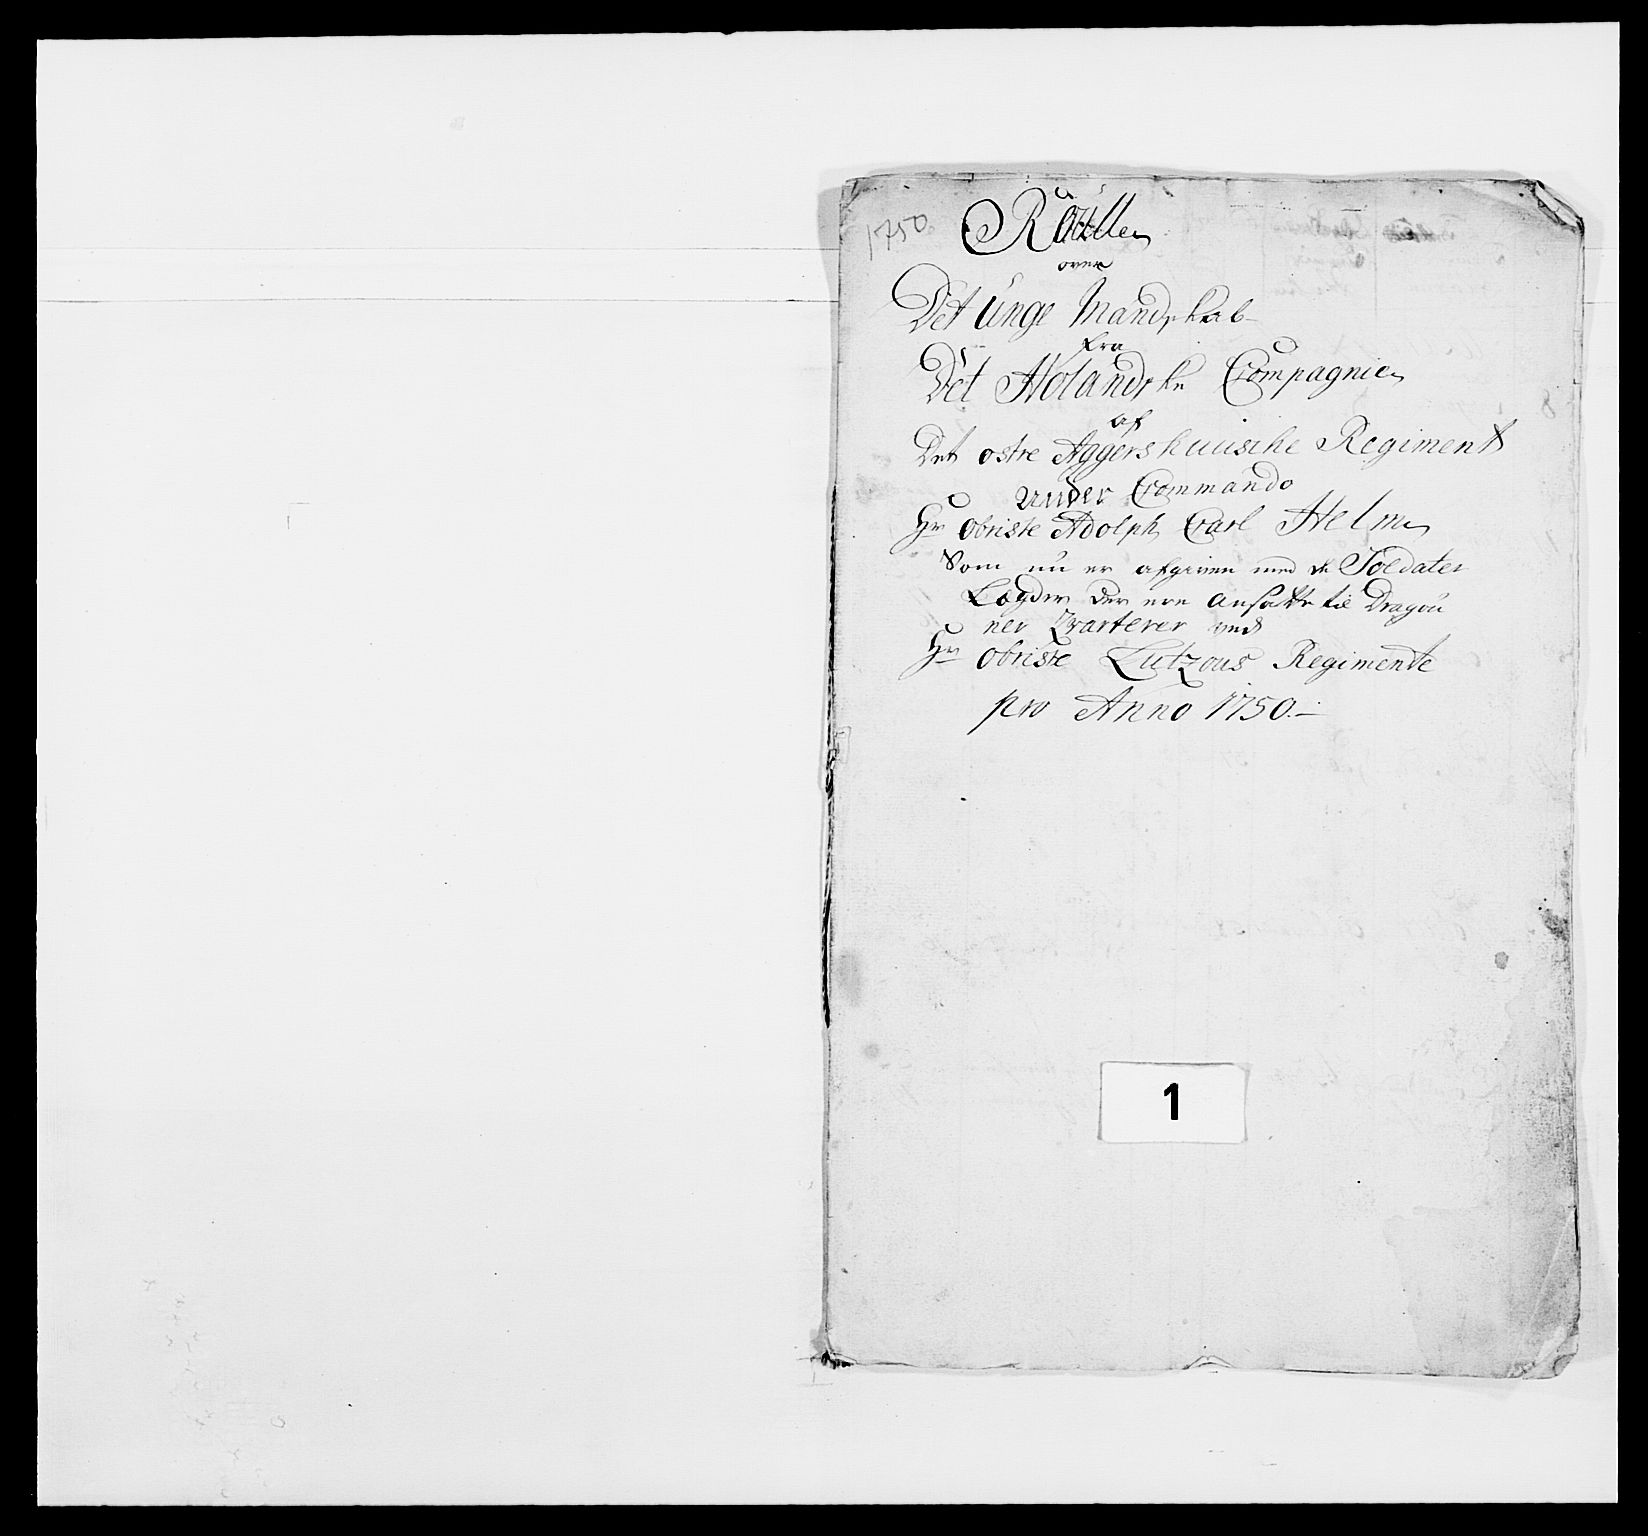 1750
Rúlle
over
Det Unge Mandskab
fra
Det Holandske Compagnie
af
Det ostre Aggershuusiske Regiment
under Commando
Hr Obriste Adolph Carl Helm
Som nu er afgiven med de Soldater
Lægder der ere ansatte til Dragou
ner Qvarterer ved
Hr Obriste Lutzous Regimente
pro Anno 1750.
1